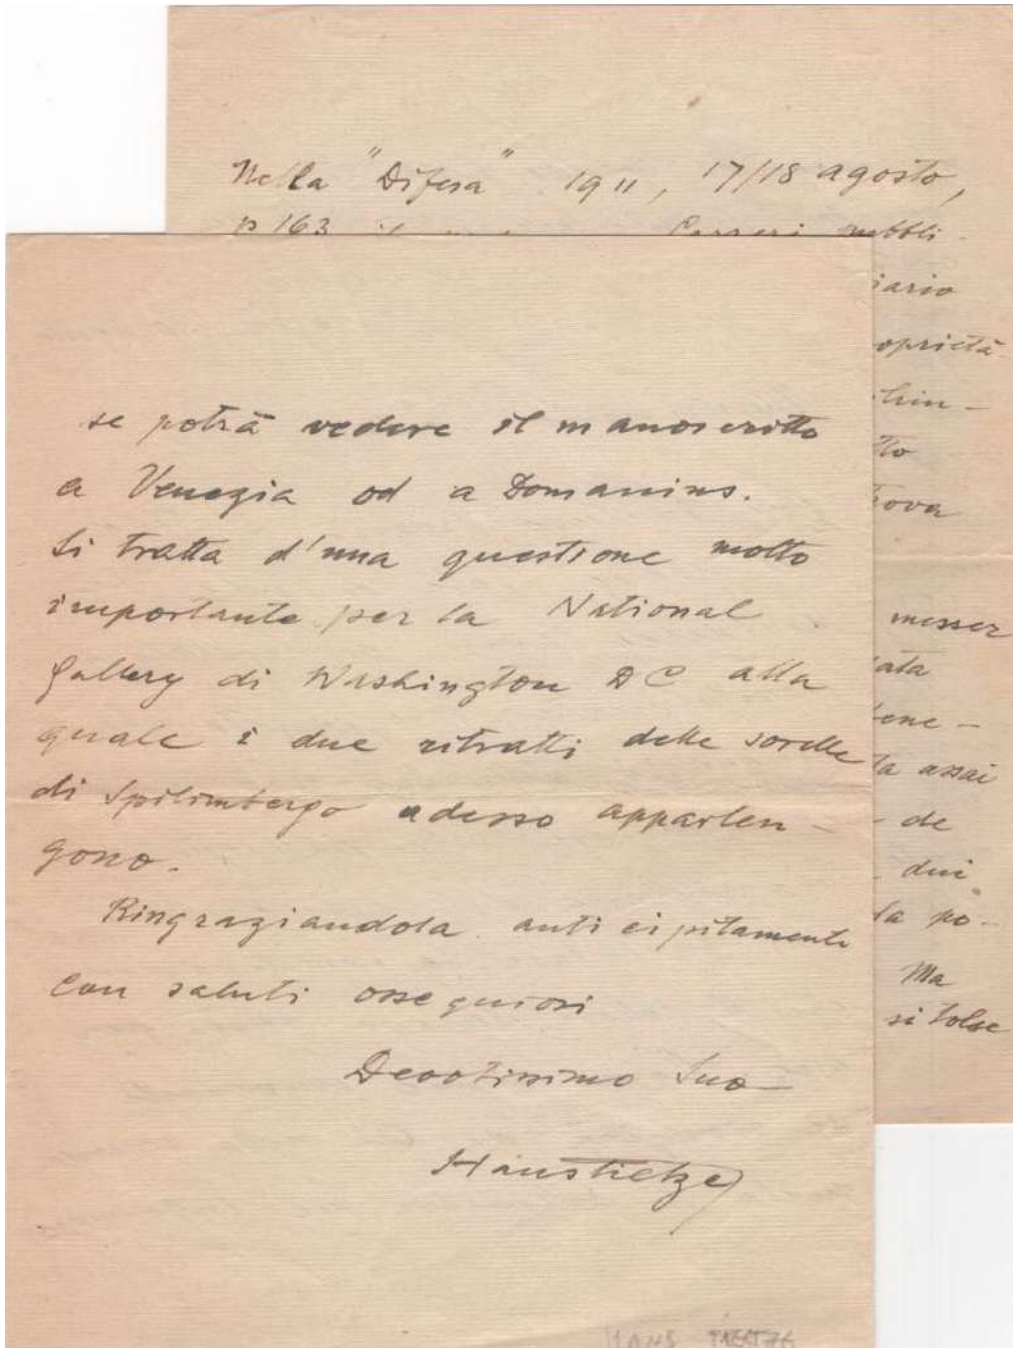 Nella "Difesa" 1911, 17/18 agosto,
p 163 Carreri pubbli-
iario
oprietà
chin-
tto
trova
messer
ata
tene-
ta assai
- de
dui
la po-
Ma
si tolse
se potrà vedere il manoscritto
a Venezia od a Domanins.
Si tratta d'una questione molto
importante per la National
Gallery di Washington DC alla
quale i due ritratti delle sorelle
di Spilimbergo adesso apparten-
gono.
Ringraziandola anticipitamente
con saluti ossequiosi
Devotissimo Suo
Hans Tietze
HANS TIETZE